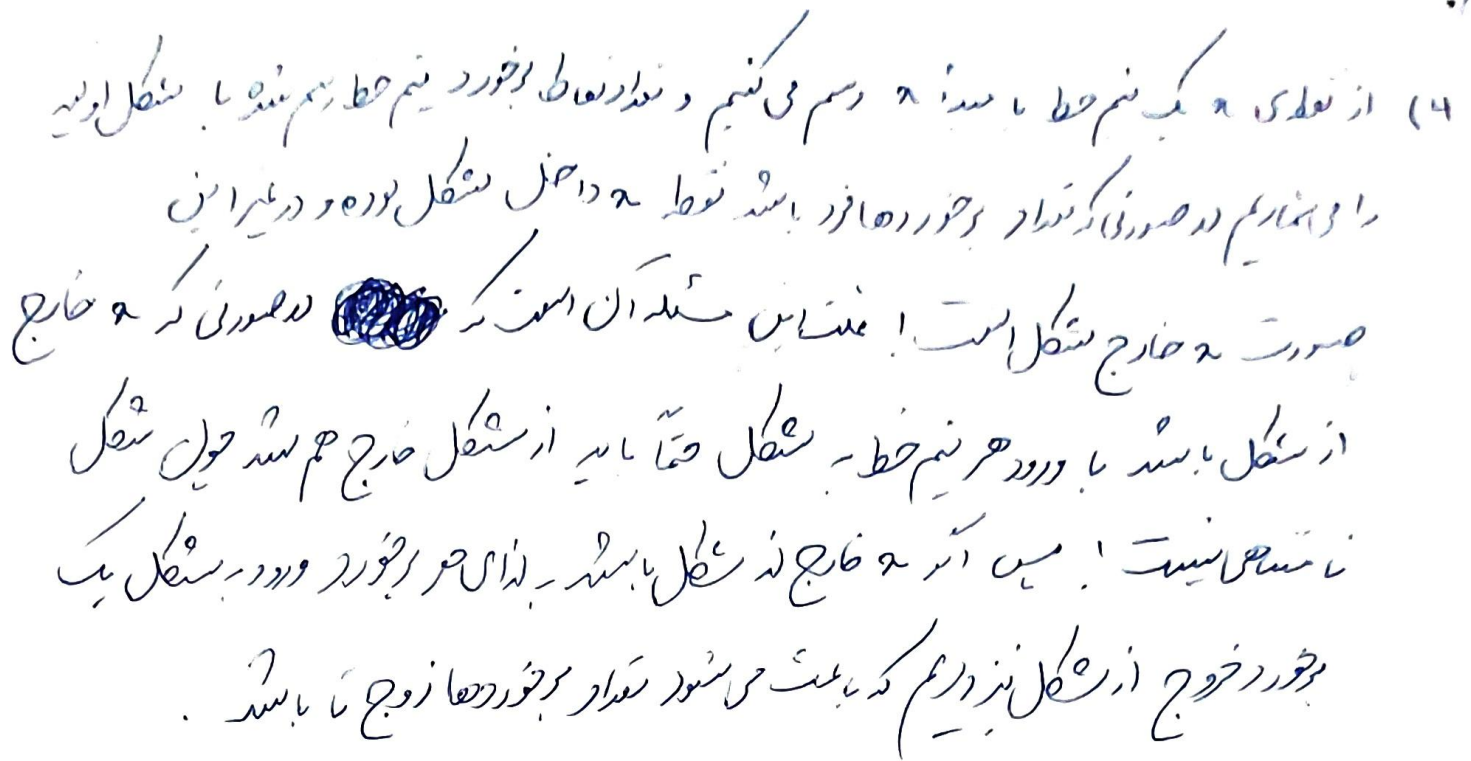 ۴) از نقطه‌ی م یک نیم خط با مبدأ م رسم می کنیم و تعداد نقاط برخورد نیم خط رسم شده با شکل اولیه
را می شماریم در صورتی که تعداد برخورد ها فرد باشد نقطه م داخل شکل بوده و در غیر این
صورت م خارج شکل است! علت این مسئله آن است که در صورتی که م خارج
از شکل باشد با ورود هر نیم خط به شکل حتماً باید از شکل خارج هم بشد چون شکل
نامتناهی نیست! پس اگر م خارج از شکل باشد به ازای هر برخورد ورود به شکل یک
برخورد خروج از شکل نیز داریم که باعث می شود تعداد برخوردها زوج تا باشد .